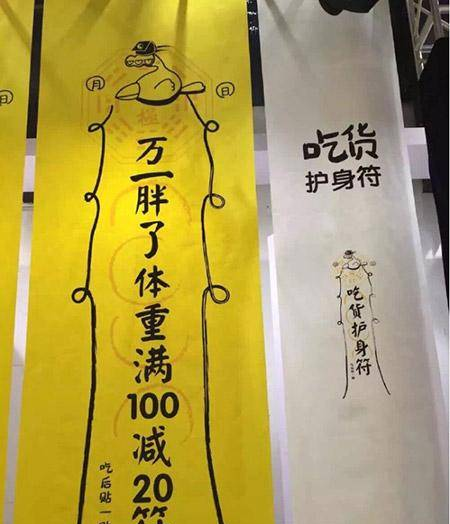 日
月 日
極
万一胖了体重满100减20符
吃后贴一
吃货
护身符
吃货护身符